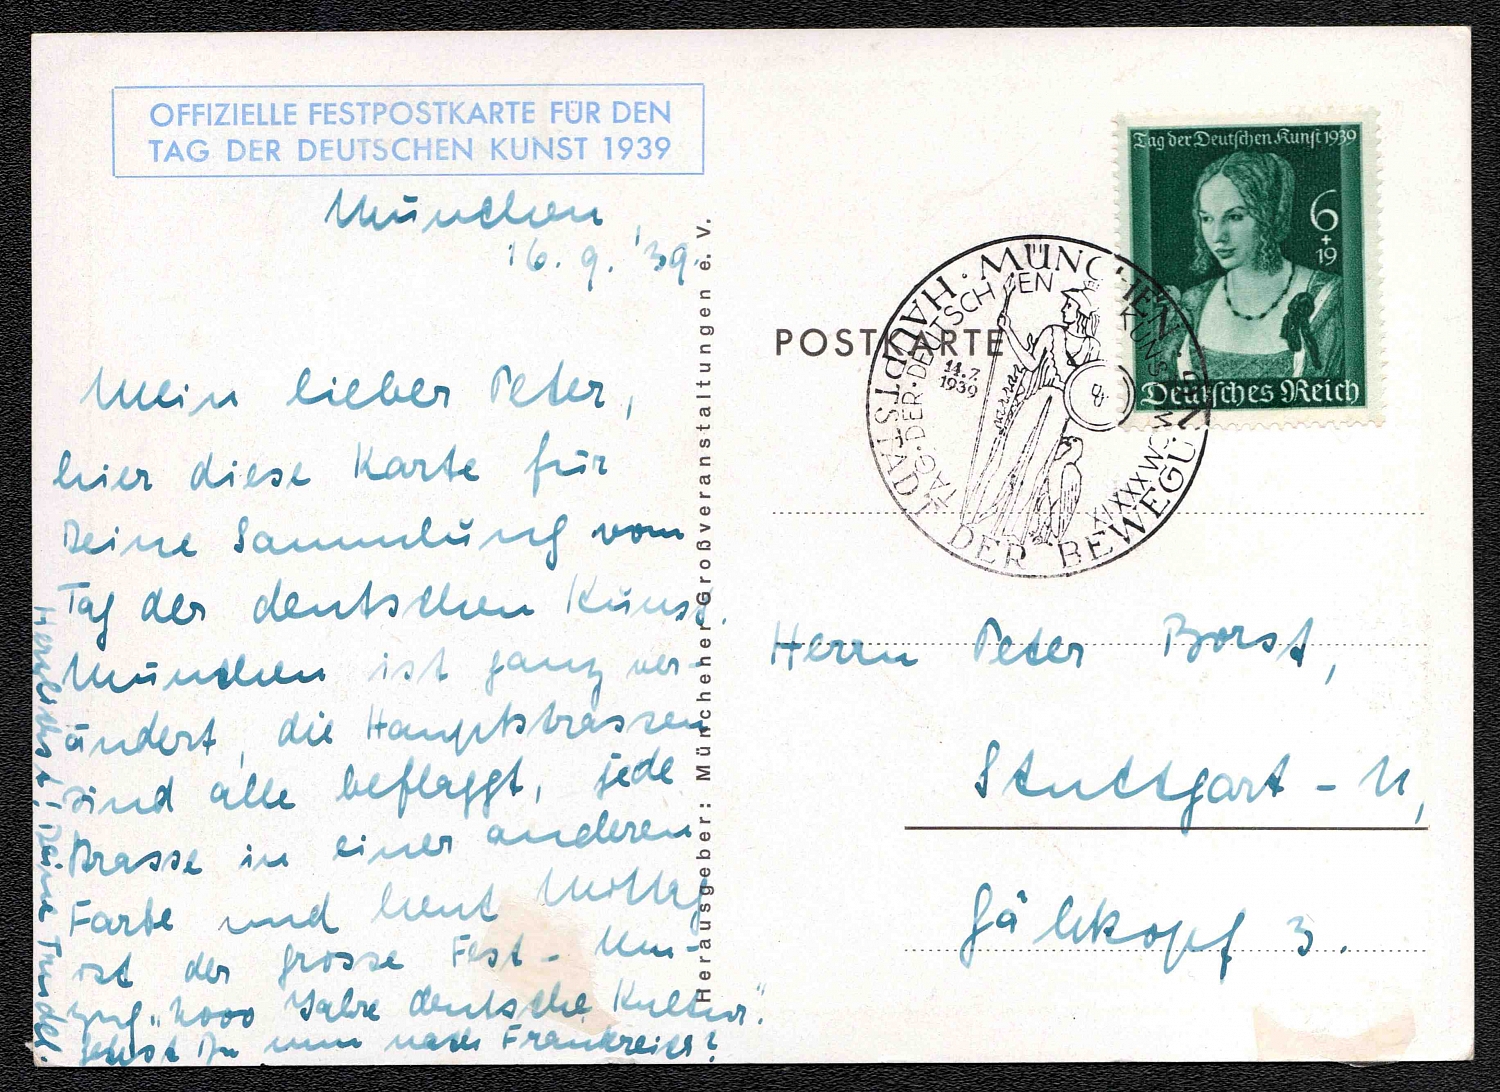 OFFIZIELLE FESTPOSTKARTE FÜR DEN
TAG DER DEUTSCHEN KUNST 1939
München
16. 9. '39.
Mein lieber Peter,
hier diese Karte für
Deine Sammlung vom
Tag der deutschen Kunst.
München ist ganz ver-
ändert, die Hauptstrassen
sind alle beflaggt, jede
Strasse in einer anderen
Farbe und heut Mittag
ist der grosse Fest-Um-
zug „2000 Jahre deutsche Kultur".
Gehst Du nun nach Frankreich?
Herzlichst! Deine Trudel.
Herausgeber: Münchener Großveranstaltungen e. V.
POSTKARTE
Tag der Deutschen Kunst 1939
6
+
19
Deutsches Reich
MÜNCHEN
HAUPTSTADT
DER BEWEGUNG
TAG·DER·DEUTSCHEN
KUNST
14.7.
1939
MCMXXXIX
Herrn Peter Borst,
Stuttgart - N,
Gähkopf 3.